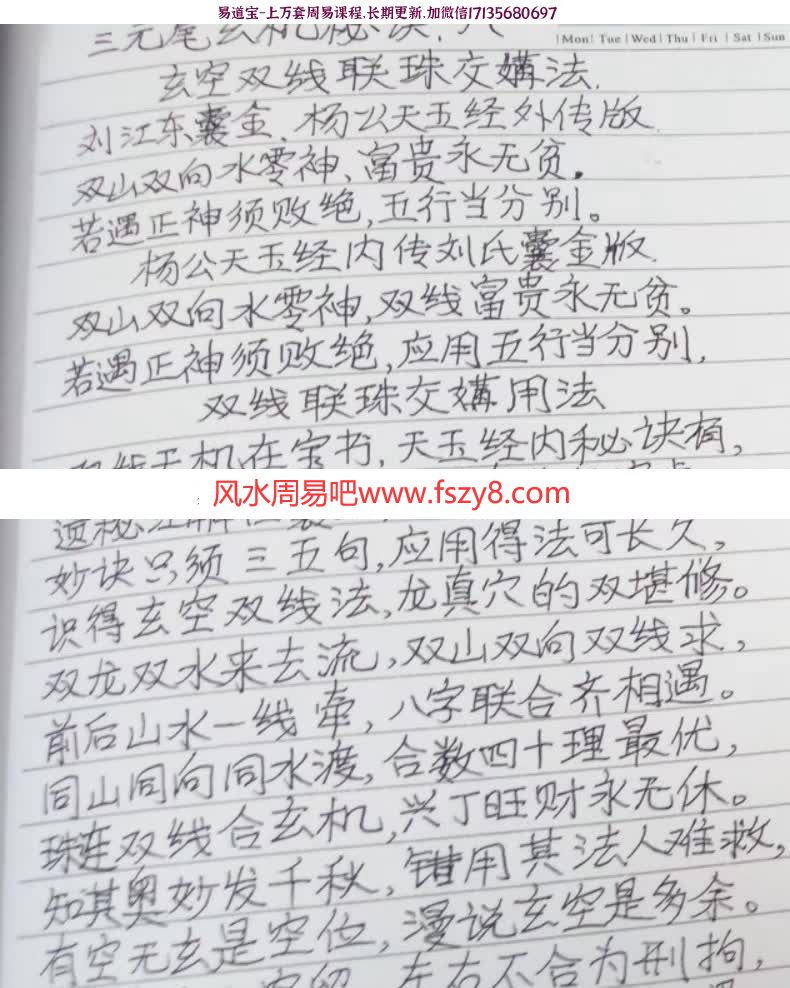 易道宝-上万套周易课程.长期更新.加微信17135680697
Mon Tue Wed Thu Fri Sat Sun
三元尾玄机秘诀
玄空双线联珠交媾法.
刘江东囊金、杨公天玉经外传版.
双山双向水零神、富贵永无贫。
若遇正神须败绝,五行当分别。
杨公天玉经内传刘氏囊金版.
双山双向水零神,双线富贵永无贫。
若遇正神须败绝,应用五行当分别,
双线联珠交媾用法
玄机在宝书,天玉经内秘诀有,
风水周易吧www.fszy8.com
妙诀只须三五句,应用得法可长久,
识得玄空双线法,龙真穴的双堪修。
双龙双水来去流,双山双向双线求,
前后山水一线牵,八字联合齐相遇。
同山同向同水渡,合数四十理最优,
珠连双线合玄机,兴丁旺财永无休。
知其奥妙发千秋,错用其法人难救,
有空无玄是空位,漫说玄空是多余。
左右不合为刑拘,